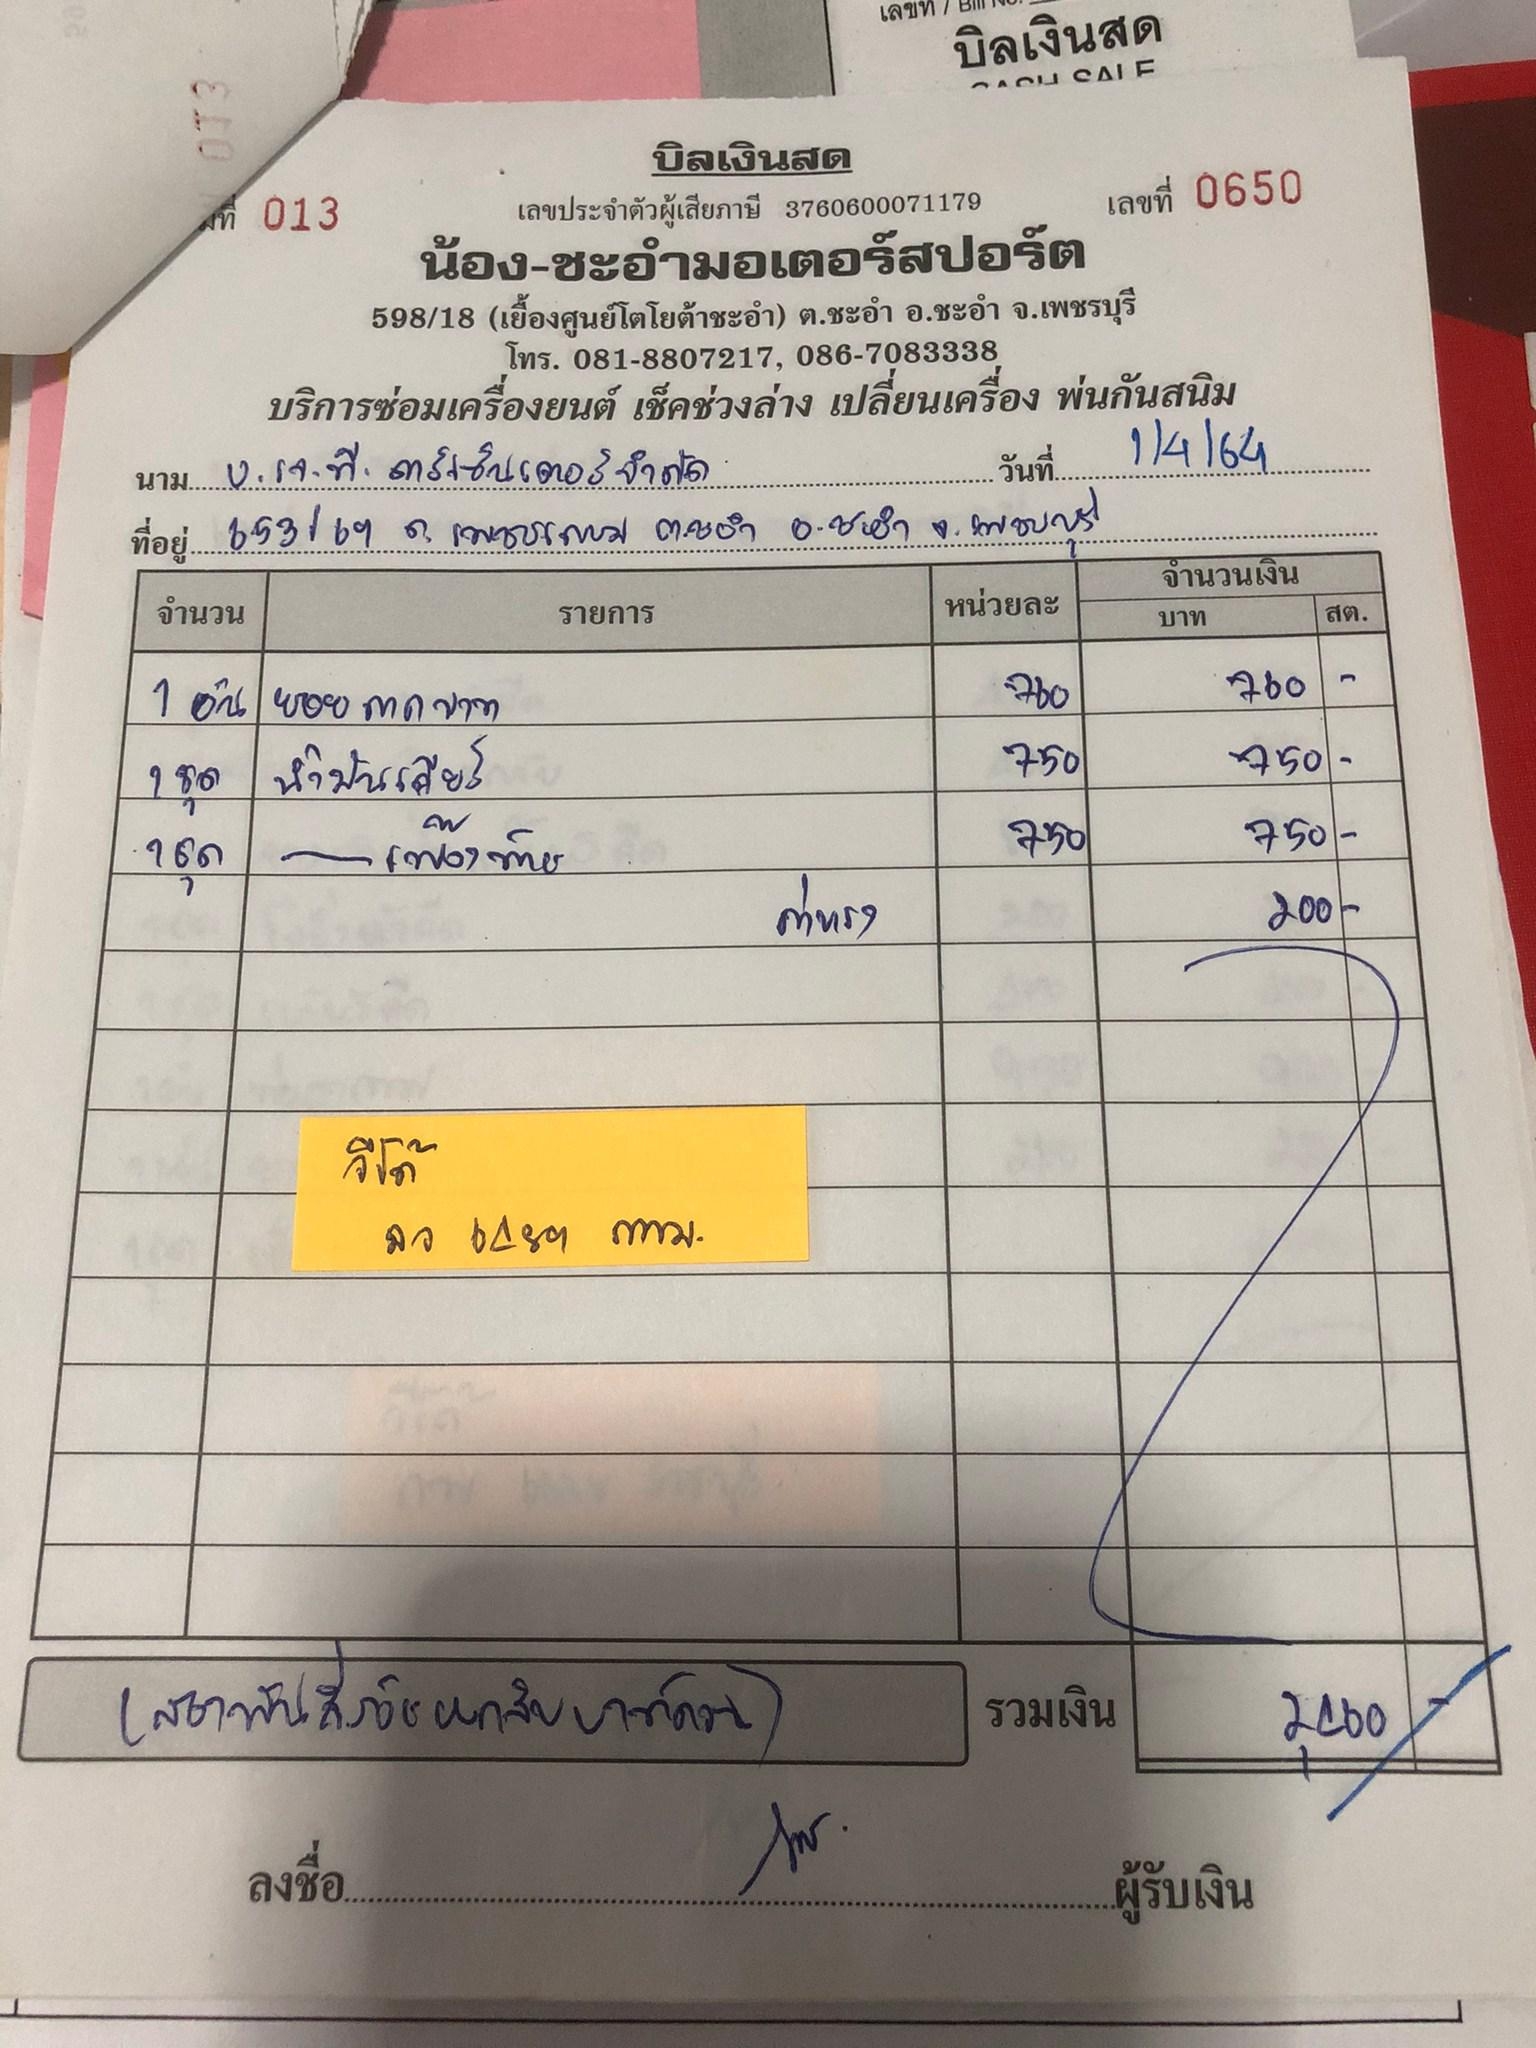 เลขที่ / Bill No.
บิลเงินสด
CASH SALE
013
บิลเงินสด
มที่ 013
เลขประจำตัวผู้เสียภาษี 3760600071179
เลขที่ 0650
น้อง-ชะอำมอเตอร์สปอร์ต
598/18 (เยื้องศูนย์โตโยต้าชะอำ) ต.ชะอำ อ.ชะอำ จ.เพชรบุรี
โทร. 081-8807217, 086-7083338
บริการซ่อมเครื่องยนต์ เช็คช่วงล่าง เปลี่ยนเครื่อง พ่นกันสนิม
นาม บ.เจ.ที. คาร์เซ็นเตอร์จำกัด วันที่ 1/4/64
ที่อยู่ 653/69 ถ.เพชรเกษม ต.ชะอำ อ.ชะอำ จ.เพชรบุรี
จำนวน รายการ หน่วยละ จำนวนเงิน
บาท สต.
1 อัน ยอย 760 760 -
1 ชุด น้ำมันเกียร์ 750 750 -
1 ชุด เฟืองท้าย 750 750 -
ค่าแรง 200 -
วีโก้
บว กทม.
(สองพันสี่ร้อยหกสิบบาทถ้วน) รวมเงิน 2,460 -
ลงชื่อ ผู้รับเงิน